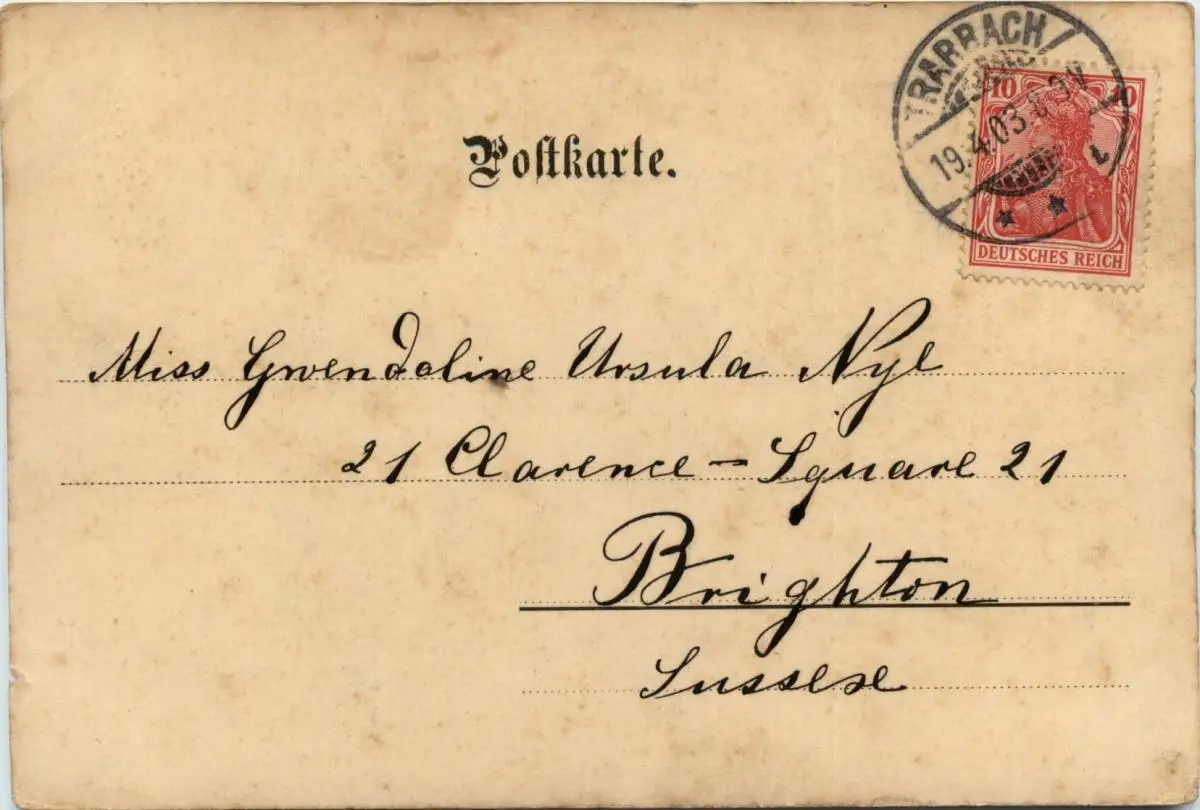 TRARBACH
19.4.03. 8-9V
10 10
DEUTSCHES REICH
Postkarte.
Miss Gwendoline Ursula Nye
21 Clarence - Square 21
Brighton
Sussex